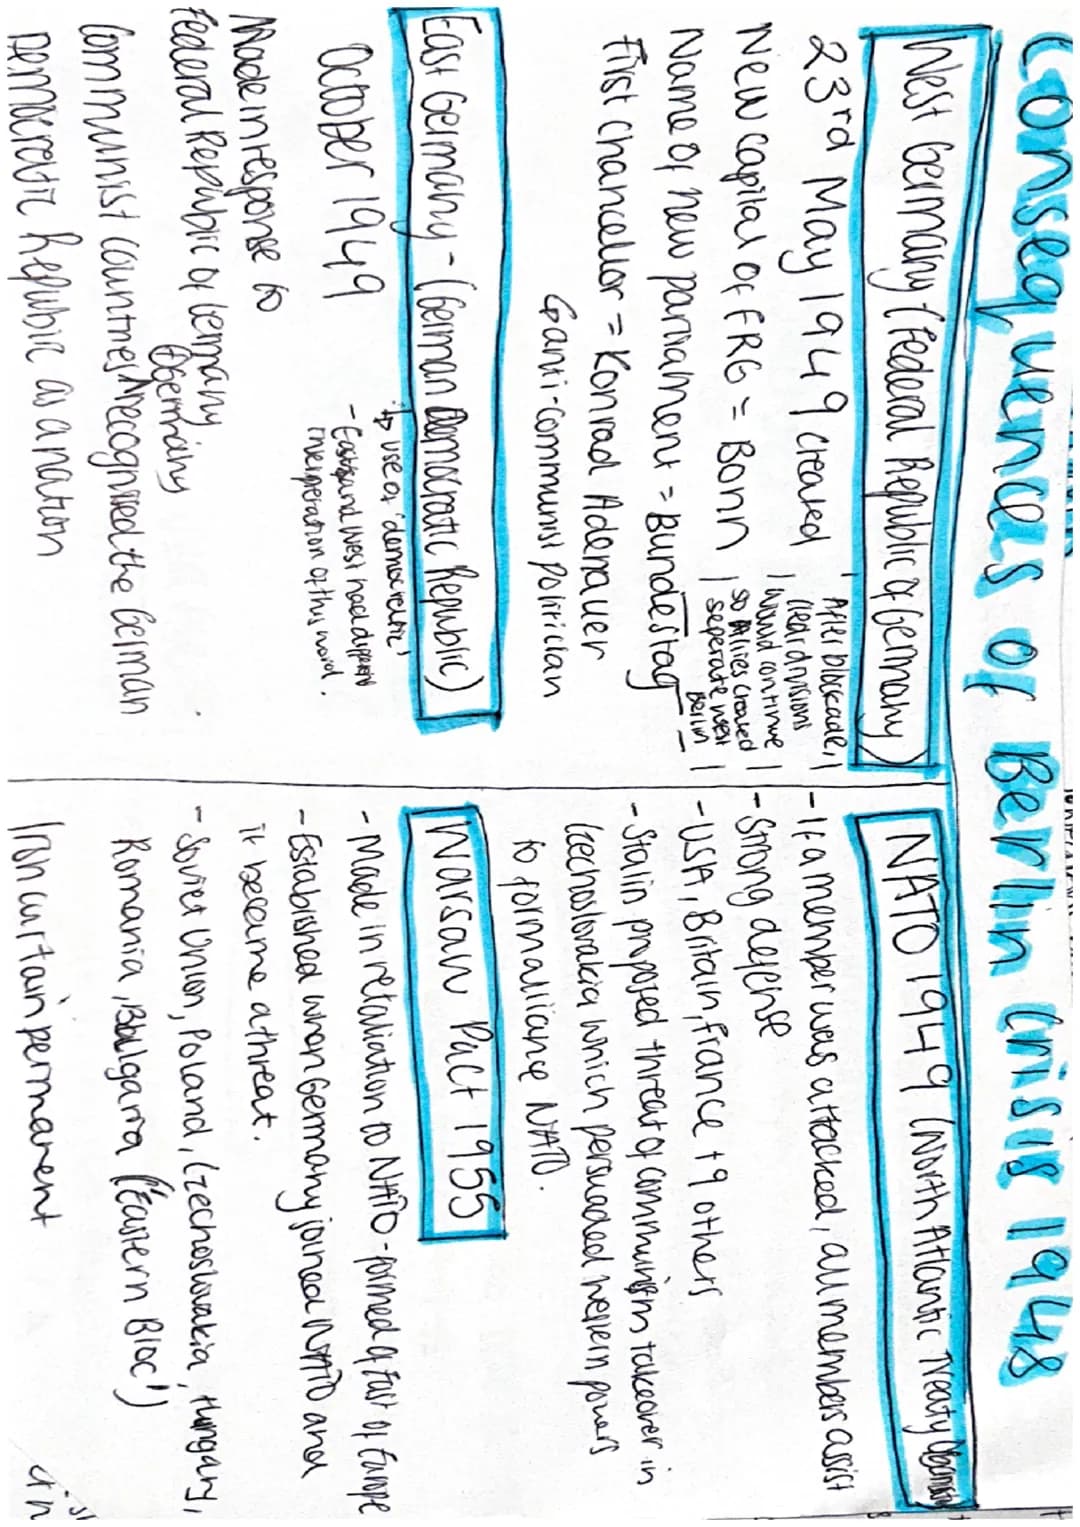 Consequences of Berlin Crisis 1948
West Germany - (Federal Republic of Germany)
23rd May 1949 created
New capital of FRG = Bonn
Name of new parliament = Bundestag
First chancellor = Konrad Adenauer
↳ anti-communist politician
After blockade,
clear divisions
would continue
so Allies created
seperate West
Berlin
East Germany - (German Democratic Republic)
October 1949
↳ use of 'democratic'
- East and West had different
interperation of this word.
Made in response to
Federal Republic of Germany
Communist countries recognised the German
Democratic Republic as a nation
NATO 1949 (North Atlantic Treaty
- If a member was attacked, all members assist
- Strong defense
- USA, Britain, France + 9 others
- Stalin proposed threat of communism takeover in
Czechoslovakia which persuaded western powers
to form alliance NATO.
Warsaw Pact 1955
- Made in retaliation to NATO - formed of East of Europe
- Established when Germany joined NATO and
it became a threat.
- Soviet Union, Poland, Czechoslovakia, Hungary,
Romania, Bulgaria ('Eastern Bloc')
Iron curtain permanent